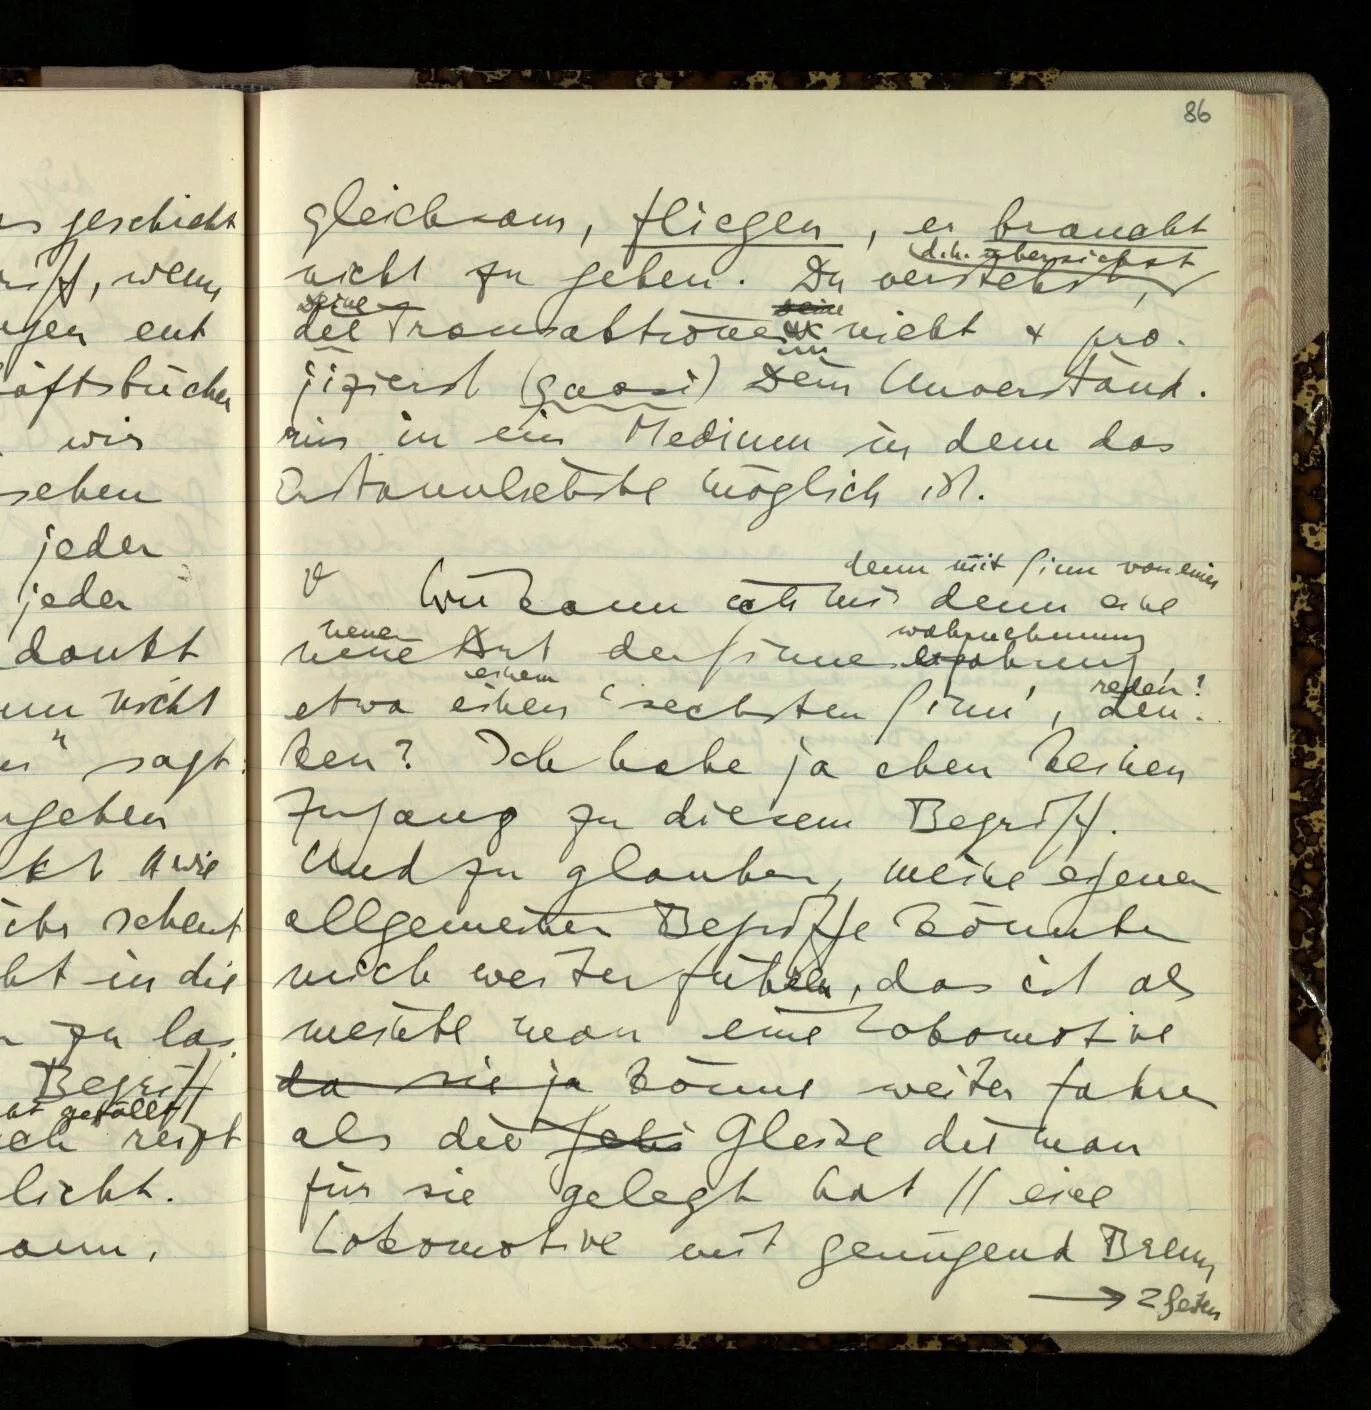 86
s geschieht
riff, wenn
gen ent
äftsbücher
wir
sehen
jeder
jeder
dankt
nn nicht
" sagt
geben
kt " wie
scheut
ht in die
zu las
Begriff
gefällt
reißt
licht.
ann,
gleichsam, fliegen, er braucht
d.h. übersiehst
nicht zu gehen. Du verstehst,
seine seine
die Transaktionen nicht & pro-
jizierst (quasi) Dein Unverständ-
nis in ein Medium in dem das
Erstaunlichste möglich ist.
denn mit Sinn von einer
Wie kann ich mir denn eine
neuen wahrnehmung
neue Art der Sinneserfahrung,
einem reden?
etwa einen 'sechsten Sinn', den-
ken? Ich habe ja eben keinen
Zugang zu diesem Begriff.
Und zu glauben, meine eigenen
allgemeinen Begriffe könnten
mich weiterführen, das ist als
meinte man eine Lokomotive
da sie ja könne weiter fahren
als die Gleise die man
für sie gelegt hat // eine
Lokomotive mit genügend Brenn
→ 2 Seiten